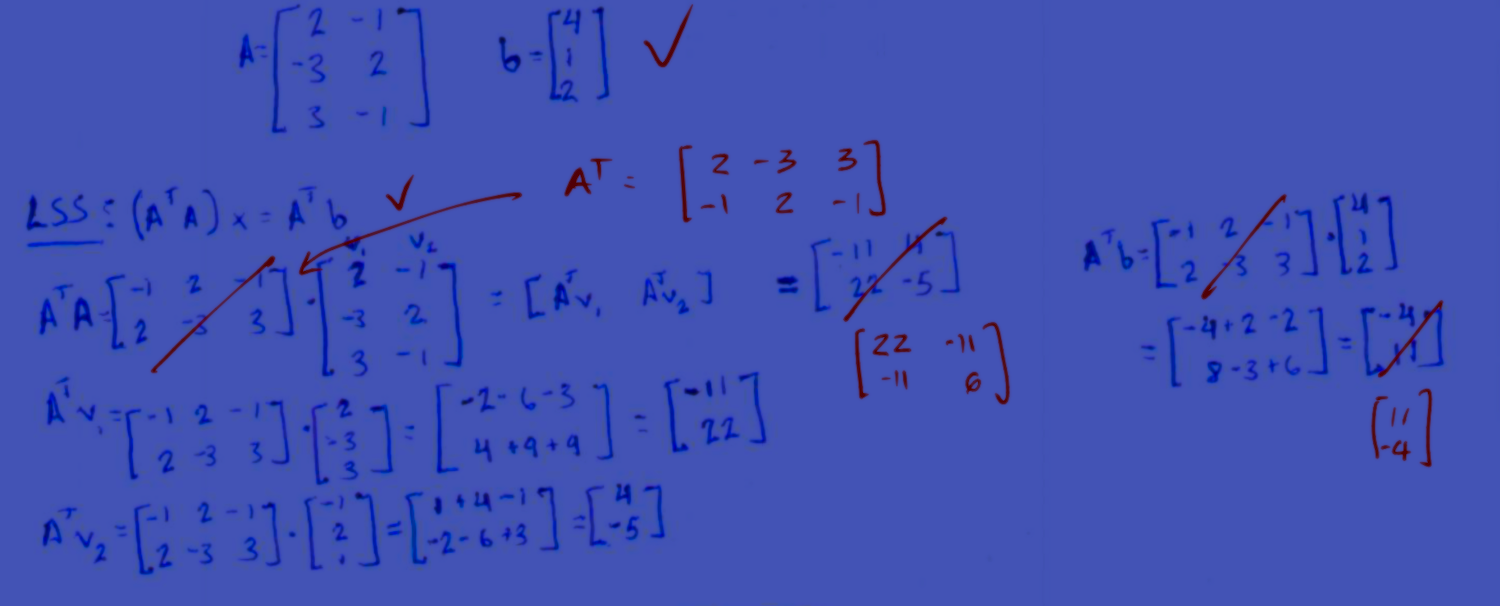 A = [2 -1; -3 2; 3 -1] b = [4; 1; 2] ✓
A^T = [2 -3 3; -1 2 -1]
LSS: (A^T A) x = A^T b ✓
v₁ v₂
A^T A = [-1 2 -1; 2 -3 3] · [2 -1; -3 2; 3 -1] = [A^T v₁ A^T v₂] = [-11 11; 22 -5]
[22 -11; -11 6]
A^T v₁ = [-1 2 -1; 2 -3 3] · [2; -3; 3] = [-2-6-3; 4+9+9] = [-11; 22]
A^T v₂ = [-1 2 -1; 2 -3 3] · [-1; 2; 1] = [1+4-1; -2-6+3] = [4; -5]
A^T b = [-1 2 -1; 2 -3 3] · [4; 1; 2]
= [-4+2-2; 8-3+6] = [-4; 11]
[11; -4]